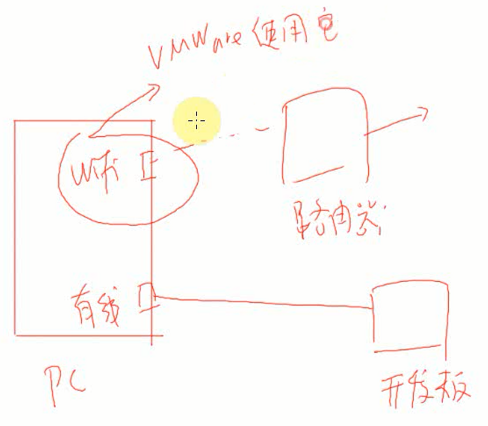 VMWare 使用它
wifi
路由器
有线
PC
开发板